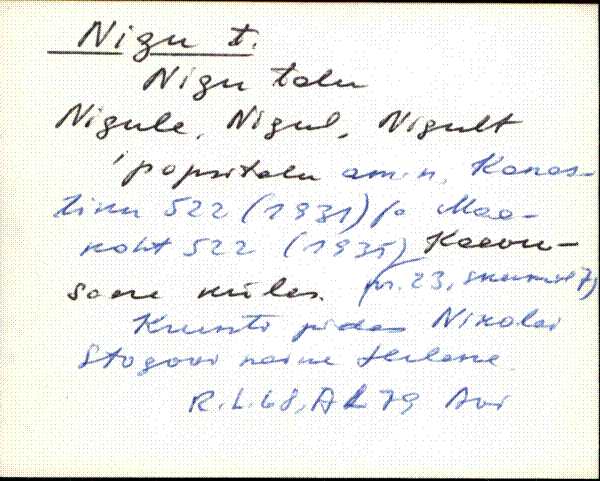 Nigu t.
Nigu talu
Nigule, Nigul, Nigult
'popsitalu am. n. Kanas-
tiku 522 (1931) ja Maa-
koht 522 (1935) Kaavu-
saare külas. (nr. 23,
Krunti pidas Nikolai
Stogovi naine Helene
R.L.68, AK 79 Avi